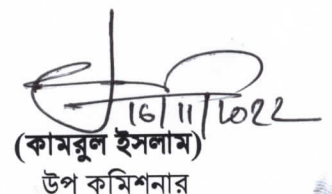 16/11/2022
(কামরুল ইসলাম)
উপ কমিশনার